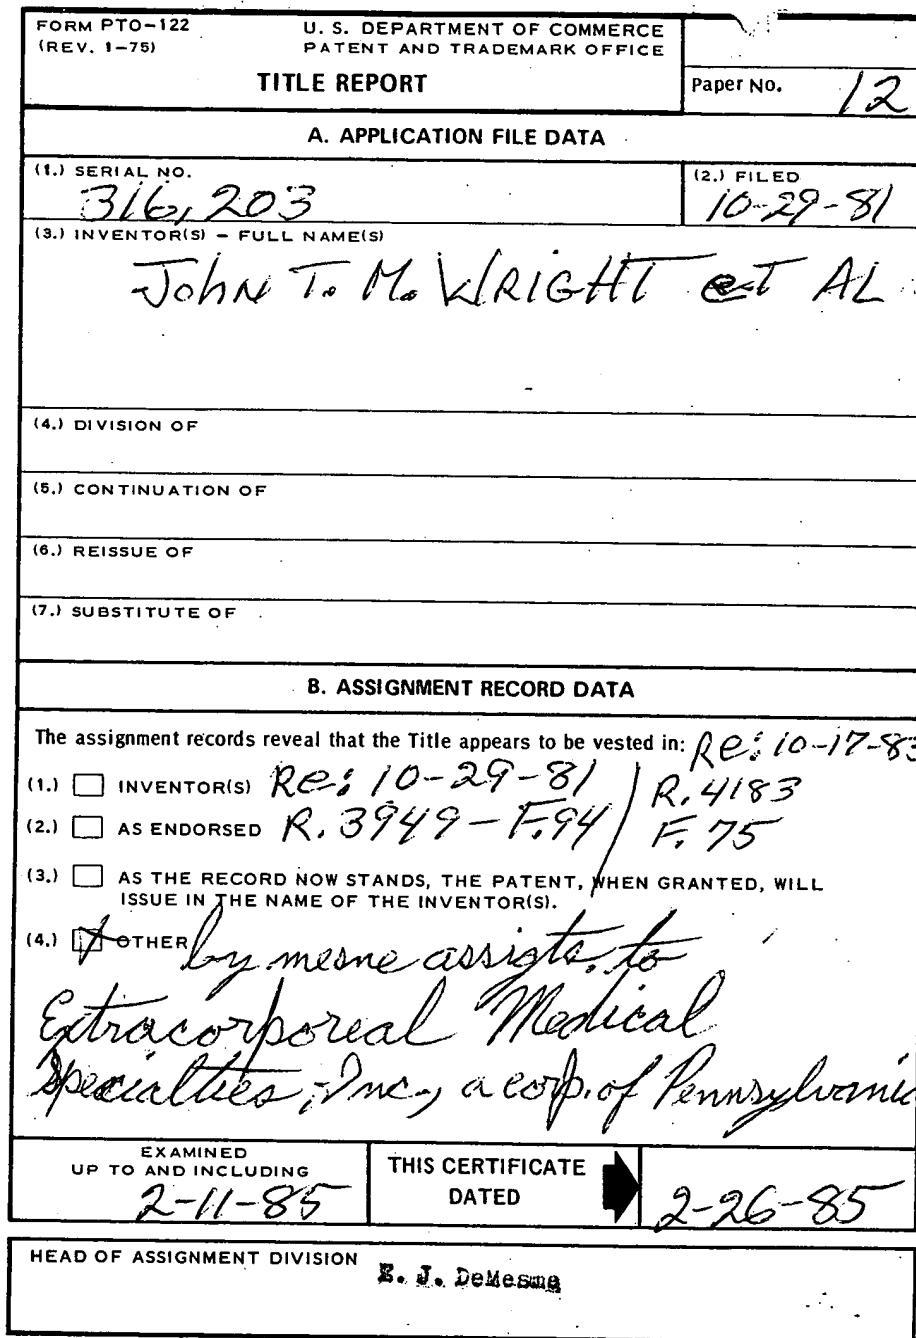 FORM PTO-122
(REV. 1-75)
U. S. DEPARTMENT OF COMMERCE
PATENT AND TRADEMARK OFFICE
TITLE REPORT
Paper No. 12
A. APPLICATION FILE DATA
(1.) SERIAL NO.
316,203
(2.) FILED
10-29-81
(3.) INVENTOR(S) - FULL NAME(S)
John T. M. WRIGHT et AL
(4.) DIVISION OF
(5.) CONTINUATION OF
(6.) REISSUE OF
(7.) SUBSTITUTE OF
B. ASSIGNMENT RECORD DATA
The assignment records reveal that the Title appears to be vested in: Re: 10-17-83
(1.) INVENTOR(S) Re: 10-29-81 / R. 4183
(2.) AS ENDORSED R. 3949 - F. 94 / F. 75
(3.) AS THE RECORD NOW STANDS, THE PATENT, WHEN GRANTED, WILL
ISSUE IN THE NAME OF THE INVENTOR(S).
(4.) OTHER by mesne assigts. to
Extracorporeal Medical
Specialties, Inc., a corp. of Pennsylvania
EXAMINED
UP TO AND INCLUDING
2-11-85
THIS CERTIFICATE
DATED
2-26-85
HEAD OF ASSIGNMENT DIVISION
E. J. DeMesme